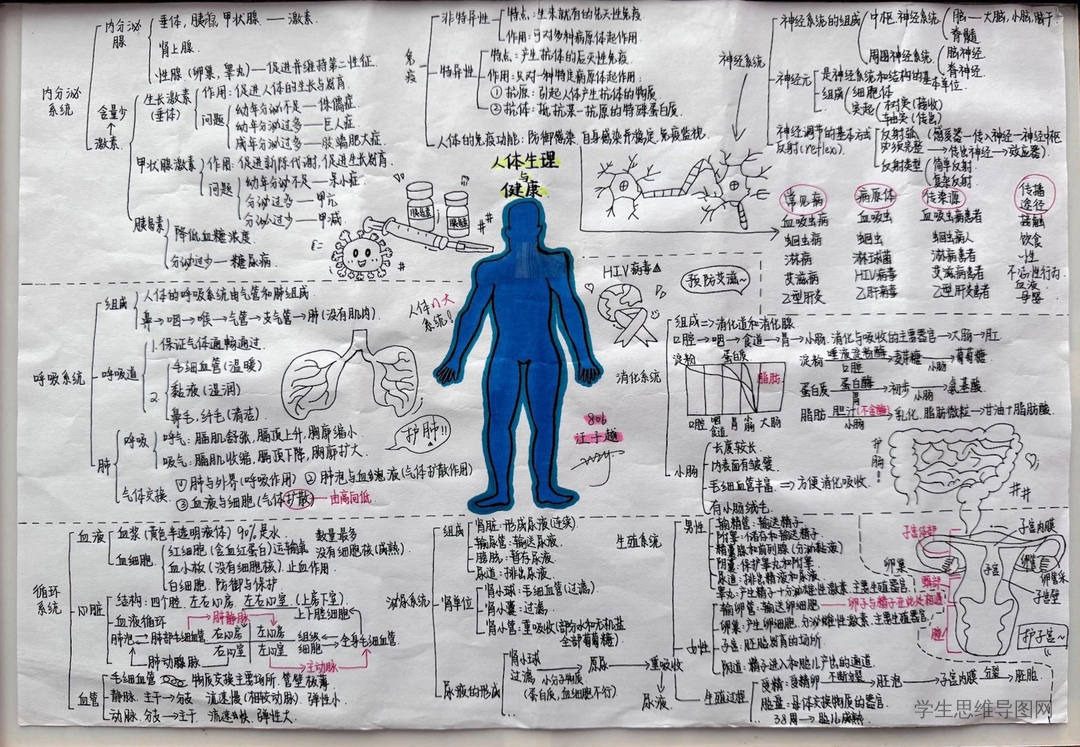 人体生理
与
健康
内分泌
系统
内分泌
腺
垂体，胰岛，甲状腺——激素．
肾上腺．
性腺（卵巢，睾丸）—促进并维持第二性征．
含量少
激素
生长激素
（垂体）
作用：促进人体的生长与发育．
问题
幼年分泌不足—侏儒症
幼年分泌过多—巨人症
成年分泌过多—肢端肥大症
甲状腺激素
作用：促进新陈代谢，促进生长发育．
问题
幼年分泌不足—呆小症
分泌过多—甲亢
分泌过少—甲减
胰岛素
降低血糖浓度
分泌过少—糖尿病．
免疫
非特异性
特点：生来就有的先天性免疫
作用：可对多种病原体起作用．
特异性
特点：产生抗体的后天性免疫．
作用：只对一种特定病原体起作用：
①抗原：引起人体产生抗体的物质
②抗体：抵抗某一抗原的特殊蛋白质
人体的免疫功能：防御感染，自身稳定，免疫监视．
神经系统
神经系统的组成
中枢神经系统
脑—大脑，小脑，脑干．
脊髓
周围神经系统
脑神经
脊神经．
神经元
是神经系统和结构的基本单位．
组成
细胞体
突起
树突（接收）
轴突（传出）
神经调节的基本方式
反射(reflex)．
反射弧
必须完整
（感受器—传入神经—神经中枢
—传出神经→效应器）．
反射类型
简单反射．
复杂反射．
常见病 病原体 传染源 传播途径
血吸虫病 血吸虫 血吸虫病患者 接触
蛔虫病 蛔虫 蛔虫病人 饮食
淋病 淋球菌 淋病患者 性
艾滋病 HIV病毒 艾滋病患者 不洁性行为．
乙型肝炎 乙肝病毒 乙型肝炎患者 血液
母婴
胰岛素
胰岛素
HIV病毒
预防艾滋~
人体八大
系统！
呼吸系统
组成
人体的呼吸系统由气管和肺组成
鼻→咽→喉→气管→支气管→肺（没有肌肉）
呼吸道
1.保证气体通畅通过
2
毛细血管（温暖）
黏液（湿润）
鼻毛，纤毛（清洁）．
肺
呼吸
呼气：膈肌舒张，膈顶上升，胸廓缩小
吸气：膈肌收缩，膈顶下降，胸廓扩大．
气体交换
①肺与外界（呼吸作用）②肺泡与血液（气体扩散作用）
③血液与细胞（气体扩散）—由高向低．
护肺!!
806
消化系统
组成=>消化道和消化腺
口腔→咽→食道→胃→小肠：消化与吸收的主要器官→大肠→肛
淀粉
蛋白质
脂肪
口腔 咽 食道 胃 小肠 大肠
淀粉 唾液淀粉酶 口腔 麦芽糖 小肠 葡萄糖
蛋白质 蛋白酶 胃 初步 小肠 氨基酸
脂肪 胆汁（不含酶） 小肠 乳化．脂肪微粒→甘油+脂肪酸．
小肠
长度较长
内表面有皱襞．
毛细血管丰富
有小肠绒毛
方便消化吸收．
护肠！
循环
系统
血液
血浆（黄色半透明液体）90%是水．
血细胞
红细胞（含血红蛋白）运输氧 数量最多 没有细胞核（成熟）
血小板（没有细胞核）．止血作用．
白细胞．防御与保护
心脏
结构：四个腔 左右心房 左右心室（上房下室）．
血液循环
肺静脉
上下腔静脉
肺泡 肺部毛细血管
右心房
右心室
左心房
左心室
组织
细胞
全身毛细血管
肺动脉
主动脉
血管
毛细血管 物质交换主要场所，管壁极薄
静脉．主干→分支 流速慢（相较动脉）．弹性小．
动脉．分支→主干 流速快，弹性大．
泌尿系统
组成
肾脏：形成尿液（连续）．
输尿管：输送尿液
膀胱：暂存尿液
尿道：排出尿液．
肾单位
肾小球：毛细血管（过滤）
肾小囊：过滤．
肾小管：重吸收（部分水和无机盐
全部葡萄糖）．
尿液的形成
肾小球
过滤
小分子物质
（蛋白质，血细胞不行）
原尿
重吸收
尿液
生殖系统
男性
输精管：输送精子
附睾：储存和输送精子
精囊腺和前列腺（分泌黏液）
阴囊：保护睾丸和附睾
尿道：排出精液和尿液
睾丸：产生精子+分泌雄性激素．主要生殖器官．
女性
输卵管：输送卵细胞——卵子与精子在此处相遇
卵巢：产生卵细胞，分泌雌性激素，主要生殖器官！
子宫：胚胎发育的场所
阴道：精子进入和胎儿产出的通道．
生殖过程
受精：受精卵 不断分裂 胚泡 子宫内膜 分裂 胚胎
胎盘：母体交换物质的器官．
38周→胎儿成熟．
子宫底部
子宫
子宫内膜
卵巢
子宫壁
护子宫~
学生思维导图网